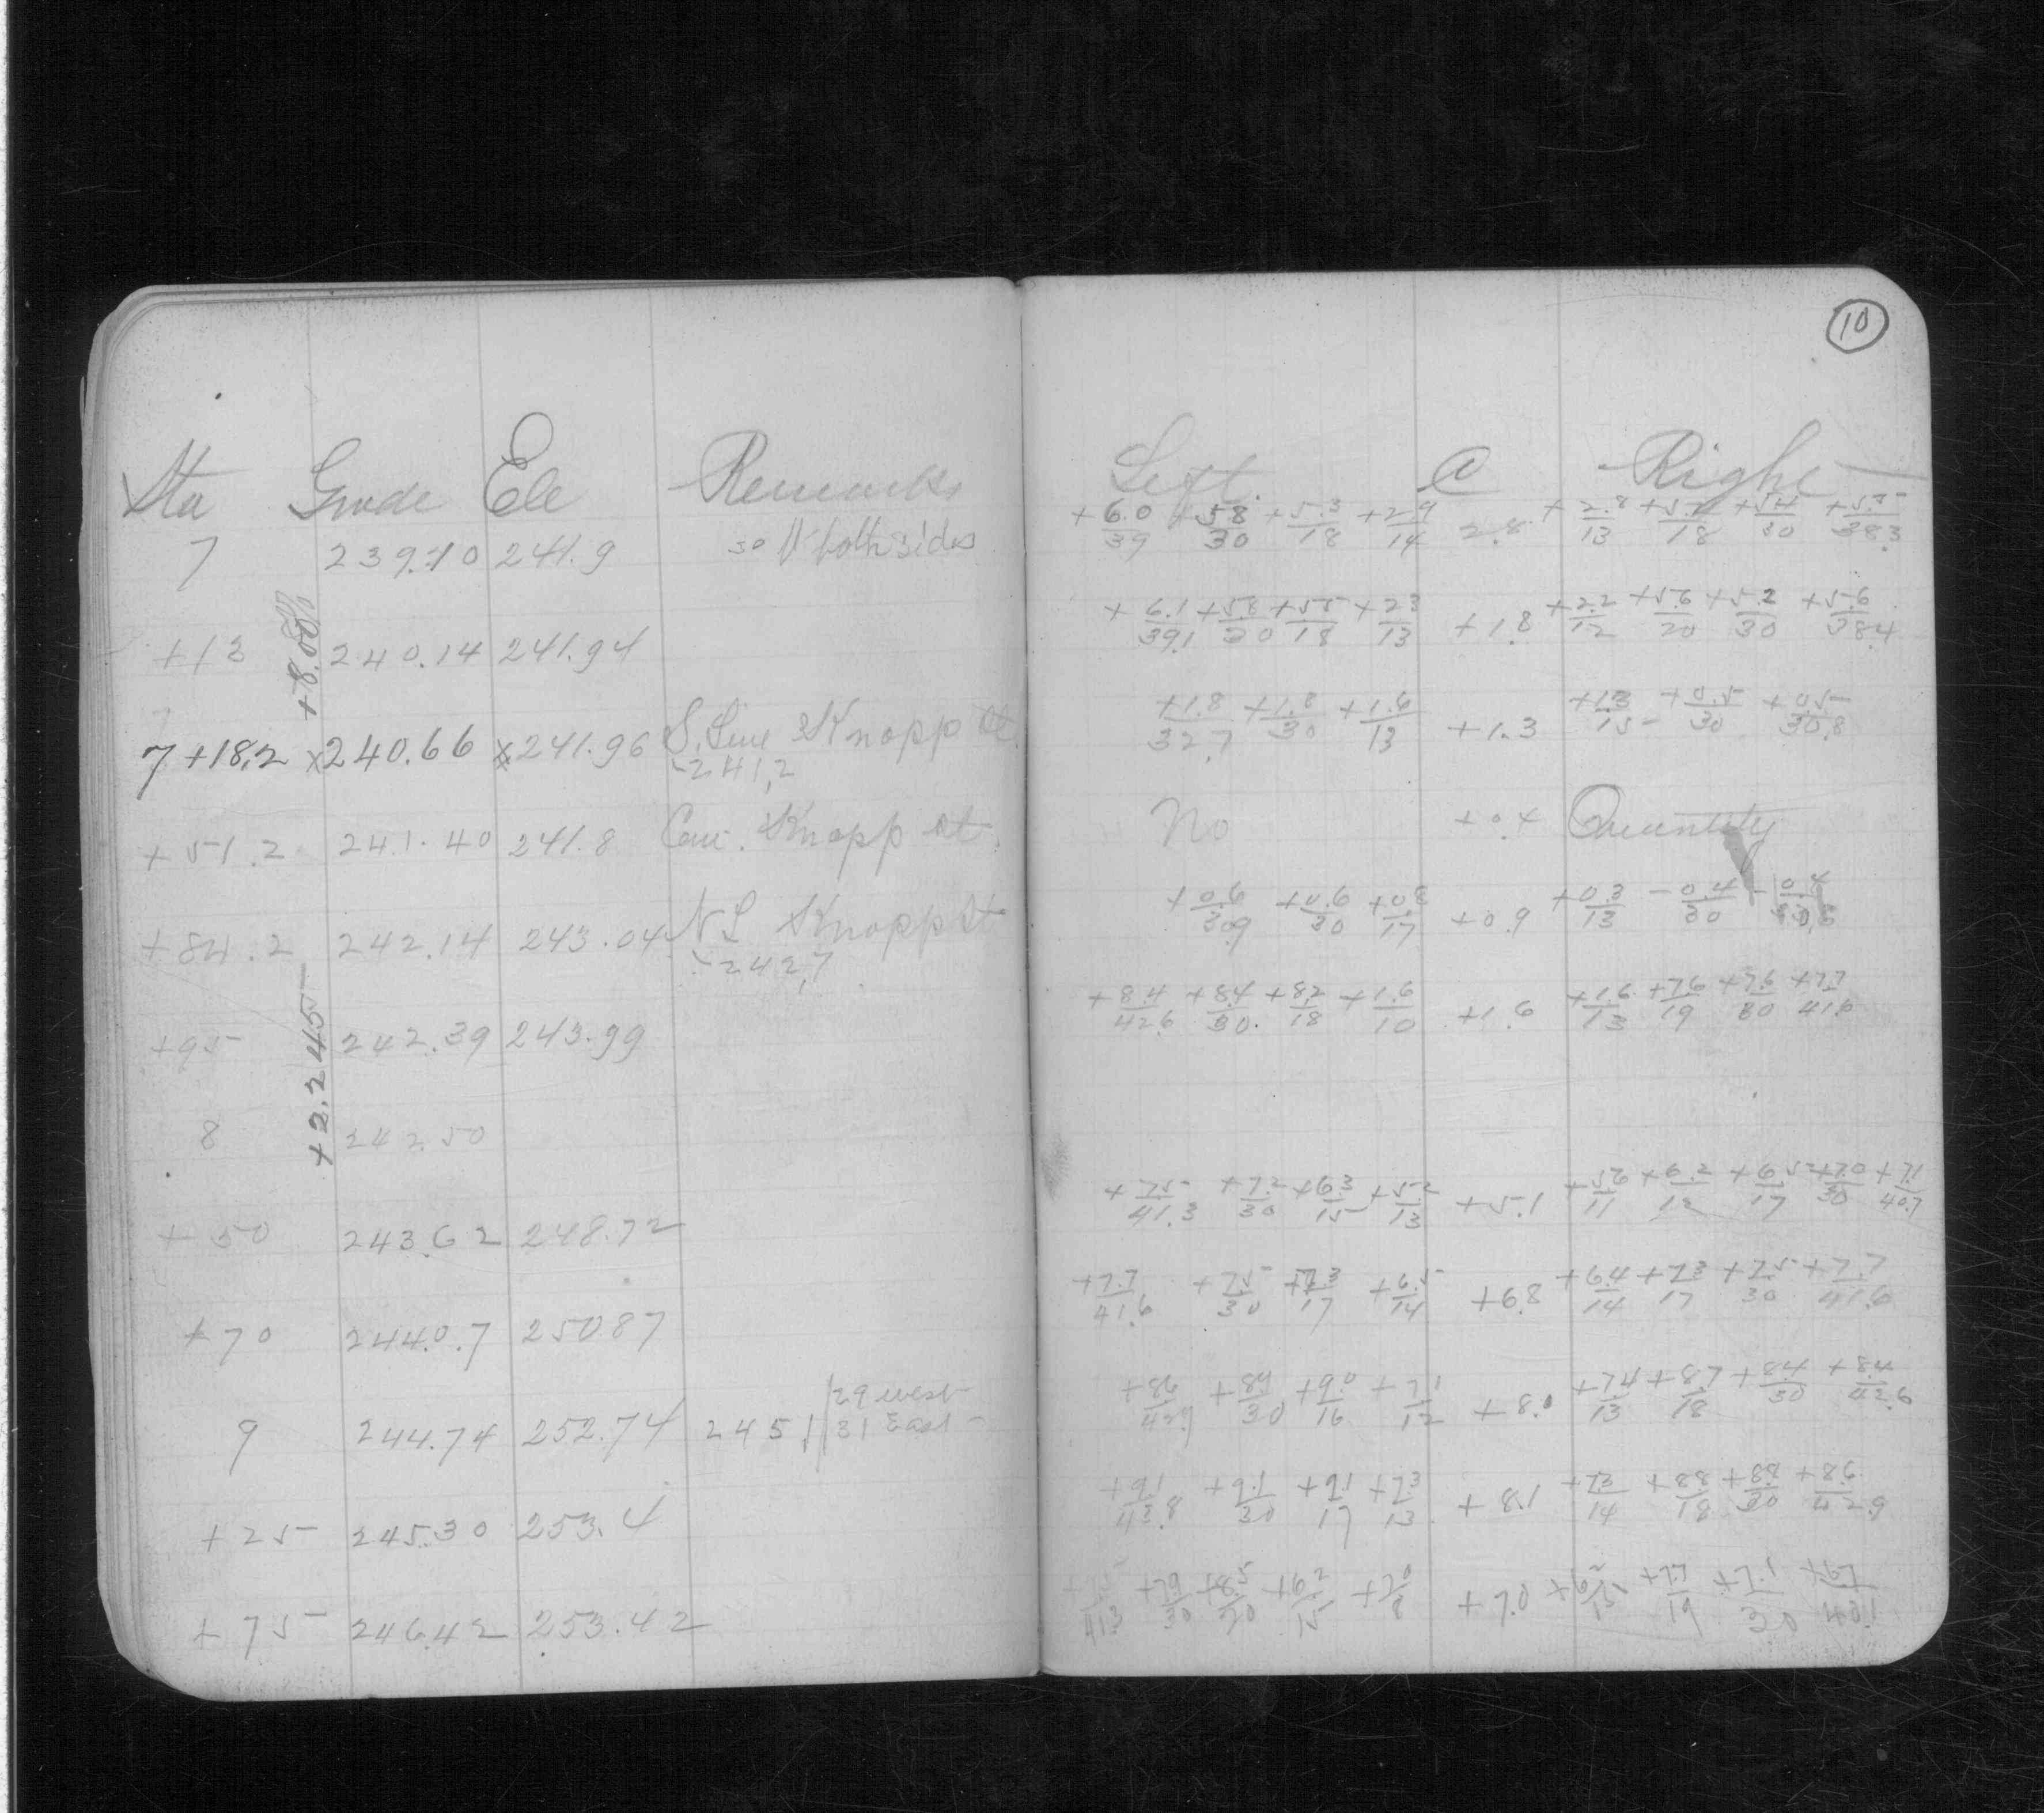 10
Sta Grade Ele Remarks
7 239.10 241.9 30 || both sides
+13 240.14 241.94
+8.00%
7+18.2 x240.66 x241.96 S. Line Knapp St
-241.2
+51.2 241.40 241.8 Cen. Knapp St.
+84.2 242.14 243.04 N L Knapp St
-242.7
+95 242.39 243.99
+2.245
8 242.50
+50 243.62 248.72
+70 244.0.7 250.87
9 244.74 252.74 245.1 || 29 West
31 East
+25 245.30 253.4
+75 246.42 253.42
Left. C Right
+6.0/39 +5.8/30 +5.3/18 +2.9/14 2.8 +2.8/13 /18 +5.4/30 /38.3
+6.1/39.1 +5.8/30 +5.5/18 +2.3/13 +1.8 +2.2/12 +5.6/20 +5.2/30 +5.6/38.4
+1.8/32.7 +1.8/30 +1.6/13 +1.3 +1.3/15 +0.5/30 +0.5/30.8
No +0.4 Quantity
+0.6/30.9 +0.6/30 +0.8/17 +0.9 +0.3/13 -0.4/30 -0.4
+8.4/42.6 +8.4/30. +8.2/18 +1.6/10 +1.6 +1.6/13 +7.6/19 +7.6/30 +7.7/41.6
+7.5/41.3 +7.2/30 +6.3/15 +5.2/13 +5.1 +5.6/11 +6.2/12 +6.5/17 +7.0/30 +7.1/40.7
+7.7/41.6 +7.5/30 +7.3/17 +6.5/14 +6.8 +6.4/14 +7.3/17 +7.5/30 +7.7/41.6
+8.6/42.9 +8.9/30 +9.0/16 +7.1/12 +8.0 +7.4/13 +8.7/18 +8.4/30 +8.4/42.6
+9.1/43.8 +9.1/30 +9.1/17 +7.3/13 +8.1 +7.3/14 +8.8/18 +8.8/30 +8.6/42.9
/41.3 +7.9/30 +8.5/20 +6.2/15 +7.0/8 +7.0 +6.2/15 +7.7/19 +7.1/30 +6.7/40.1